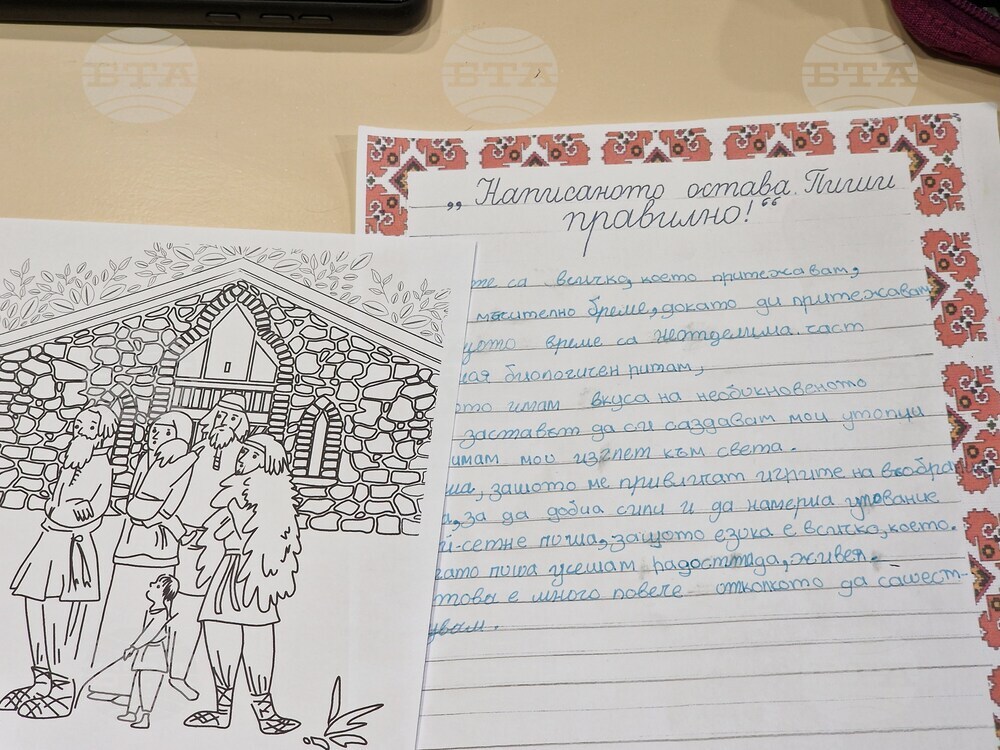 БТА БТА БТА
„Написаното остава. Пиши
правилно!“
са всичко, което притежавам,
мъчително бреме, докато ги притежавам
време са неотделима част
биологичен ритъм,
имам вкуса на необикновеното
заставът да си саздавам мои утопии
имам мой изглед към света.
защото ме привличат игрите на
за да добия сили и да намеря упование
й-сетне пиша, защото езика е всичко, което.
пиша усещам радостта, живея.
това е много повече отколкото да сашест-